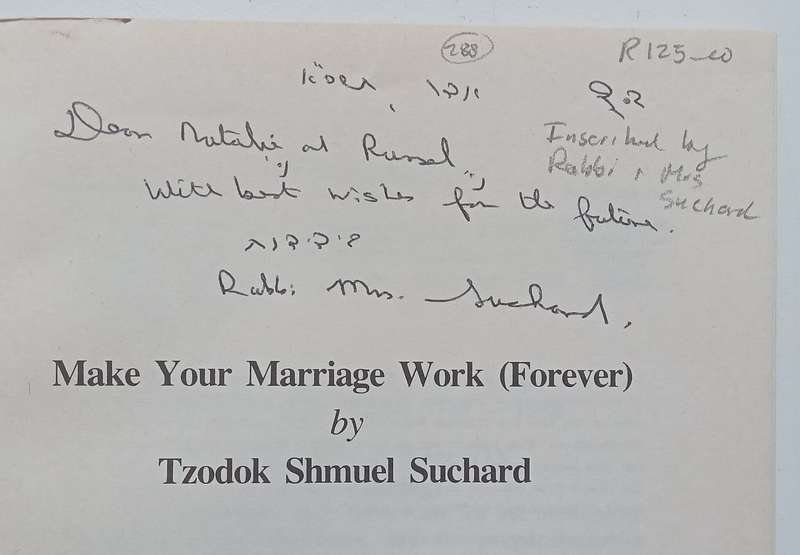 288
R125-00
Inscribed by
Rabbi & Mrs
Suchard
Dear Natalie and Russel,
With best wishes for the future.
בידידות
Rabbi Mrs. Suchard,
Make Your Marriage Work (Forever)
by
Tzodok Shmuel Suchard